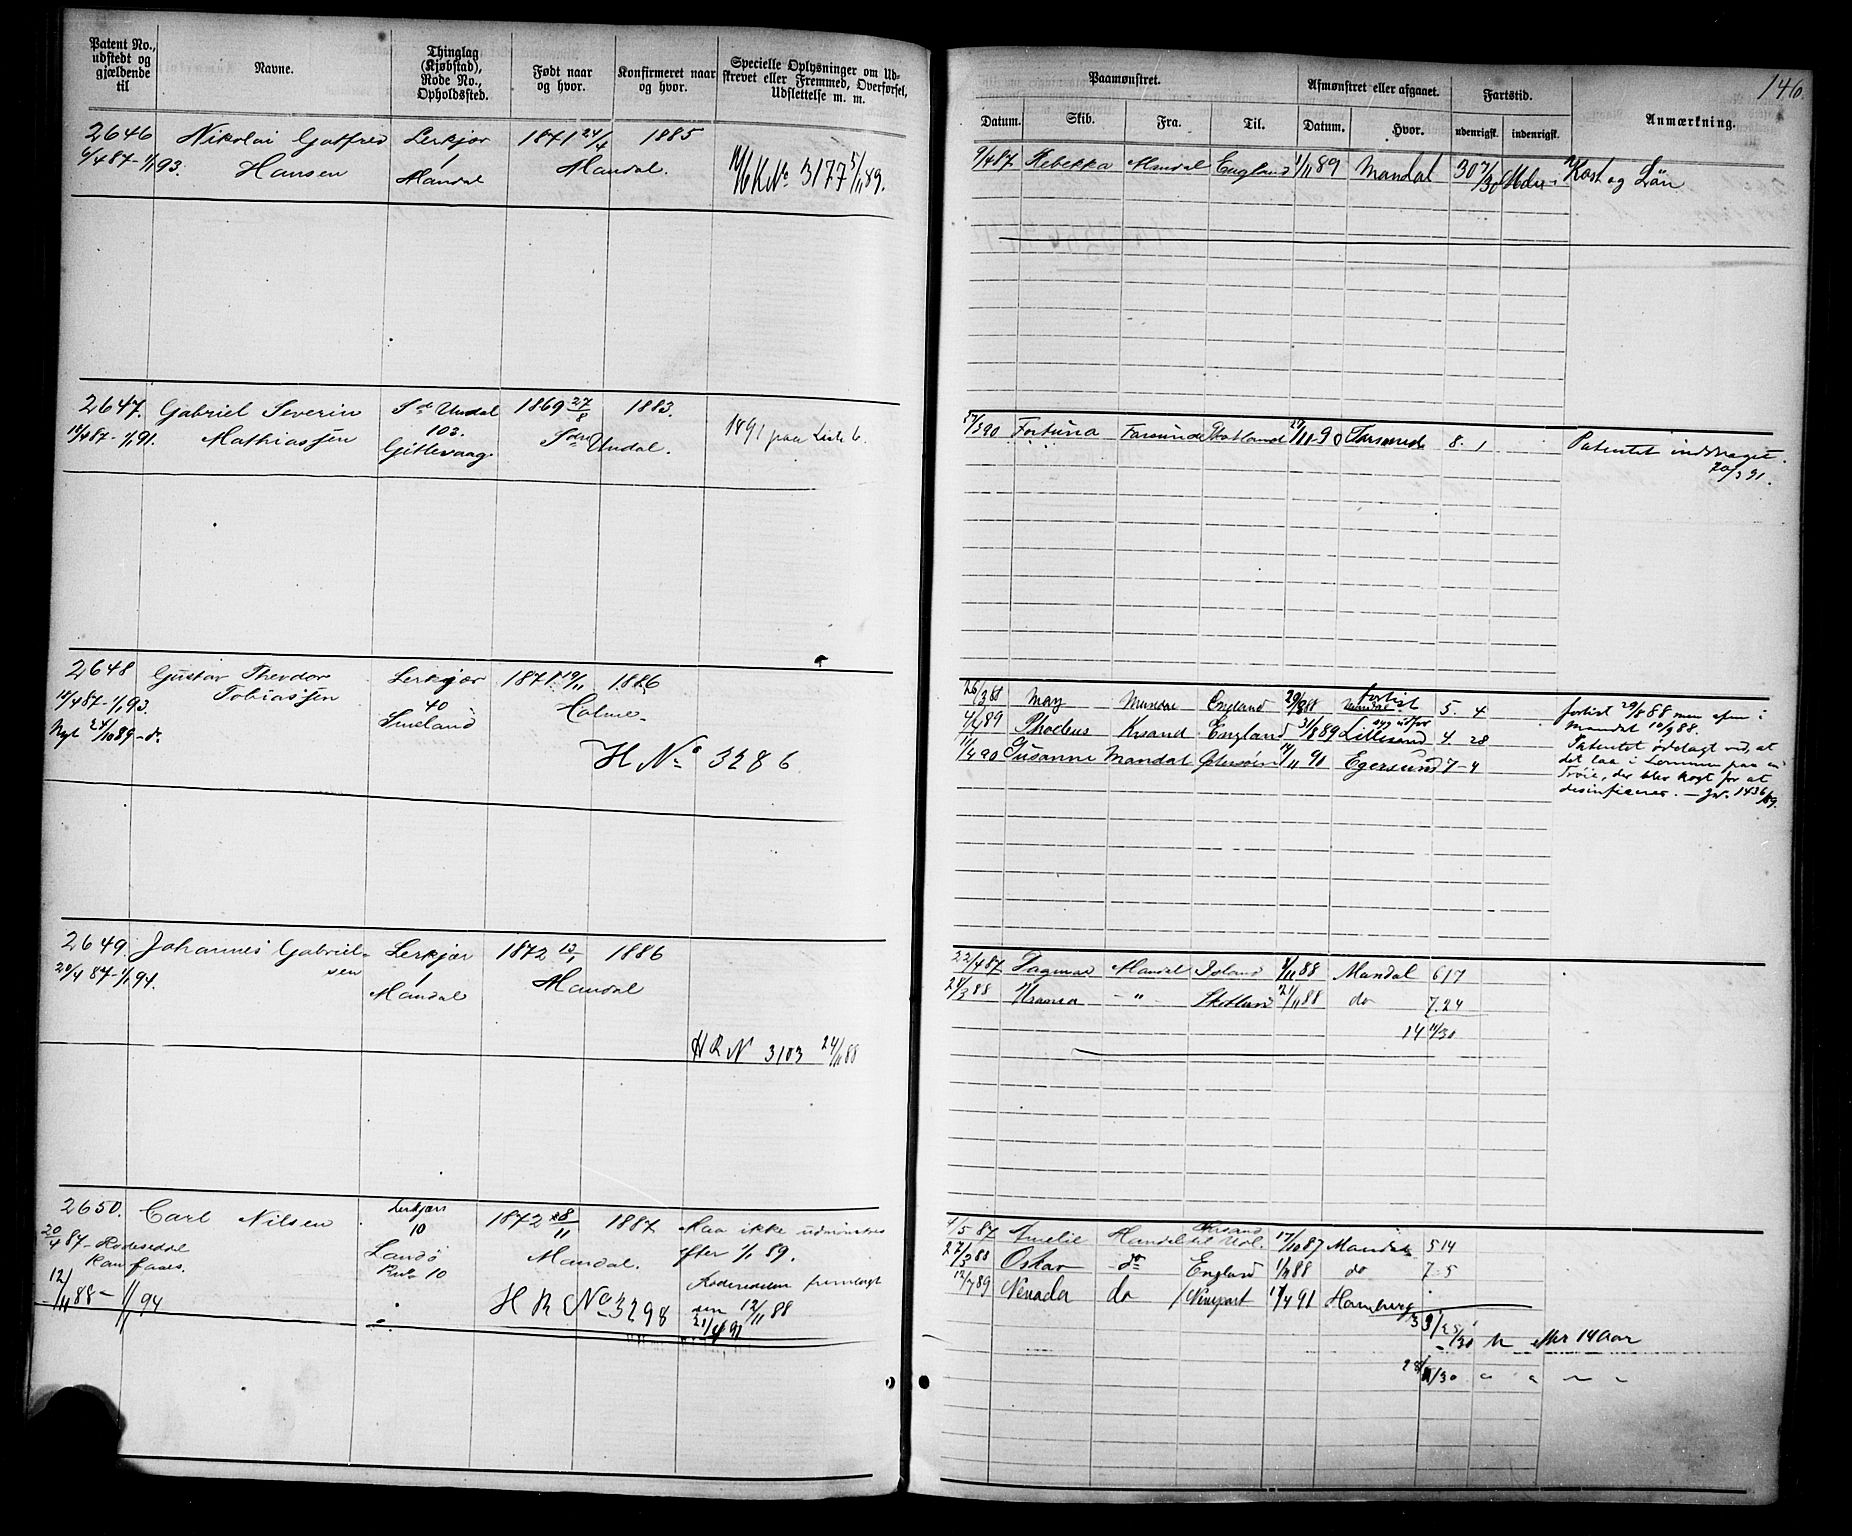 Patent No., udstedt og gjældende til
Navne.
Thinglag (Kjøbstad), Rode No., Opholdssted.
Født naar og hvor.
Konfirmeret naar og hvor.
Specielle Oplysninger om Udskrevet eller Fremmed, Overførsel, Udslettelse m. m.
2646 Nikolai Hansen Lerkjær 1871 24/4 1885
1 Mandal Mandal. No 3177 5/11 89.
2647. Gabriel Severin Sdr Undal 1869 27/8 1883.
14/4 87-1/1 91. Mathiassen 103. Sdr Undal. 1891 paa Liste 6.
Gittevaag
2648 Gustav Theodor Lerkjær 1871 19/11 1886
14/4 87-1/1 93. Tobiassen 40 Holme
Nyt 24/10 89 - do. Smeland
H No 3286
2649. Johannes Gabriel- Lerkjær 1872 12/1 1886
20/4 87-1/1 94. sen 1 Mandal
Mandal
H R N 3103 24/11 88
2650. Carl Nilsen Lerkjær 1872 28/11 1887 Maa ikke udmønstres
20/4 87- Rodeseddel 10 Mandal. efter 1/1 89.
Landö
Rode 10 Rodeseddelen fremlagt
12/11 88 - 1/1 94 H R No 3298 den 12/11 88
21/4 91
146.
Paamønstret.
Afmønstret eller afgaaet.
Fartstid.
Anmærkning.
Datum. Skib. Fra. Til. Datum. Hvor. udenrigsk. indenrigsk.
9/4 87 Rebekka Mandal England 1/11 89 Mandal 30 7/30 Kost og Lön
17/3 90 Fortuna Farsund Skotland 27/11 90 Farsund 8. 1 Patentet inddraget.
20/3 91.
26/3 88 May Mandal England 29/8 88 forlist 5. 4 forlist 29/8 88 men afm i
Mandal 10/9 88.
4/4 89 Phoebus Krsand England 31/8 89 Lillesand syg udfor 4. 28 Patentet ødelagt ved, at
11/4 90 Susanne Mandal Østersöen 14/11 90 Egersund 7-4 det laa i Lommen paa en
Tröie, der blev kogt for at
desinficeres. - Jr. 1436/89.
22/4 87 Dagmar Mandal Island 1/11 88 Mandal 6 17
24/3 88 Urania - " - Skotland 24/11 88 do 7. 24
14 11/30
4/5 87 Amelie Mandal 17/10 87 Mandal 5 14
27/3 88 Oskar do England 1/11 88 do 7. 5
12/7 89 Nevada do Newport 17/4 91 Hamburg
efter 14 Aar